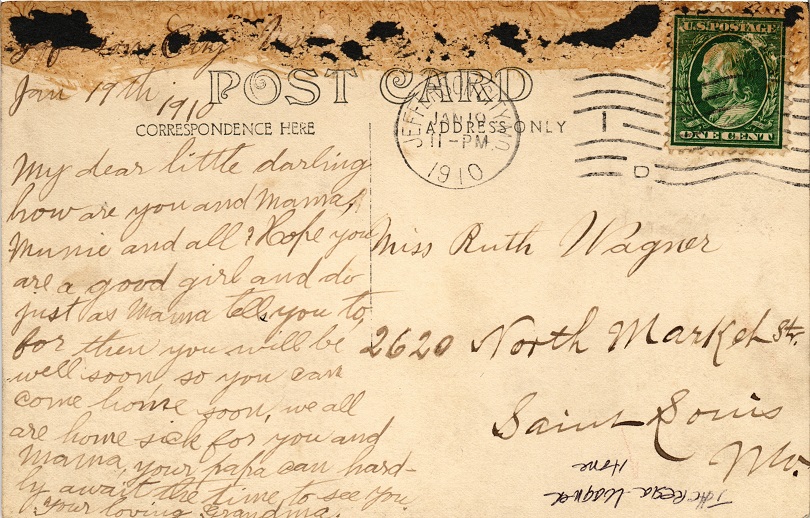 Jefferson City
Jan 19th 1910
POST CARD
CORRESPONDENCE HERE
ADDRESS ONLY
U.S. POSTAGE
ONE CENT
JEFFERSON CITY, MO.
JAN 19
11-PM
1910
1
D
My dear little darling
how are you and Mama,
Munie and all? Hope you
are a good girl and do
just as Mama tell you to,
for then you will be
well soon so you can
come home soon, we all
are home sick for you and
Mama, your papa can hard-
ly await the time to see you.
Your loving Grandma.
Miss Ruth Wagner
2620 North Market Str.
Saint Louis
Mo.
Wagner